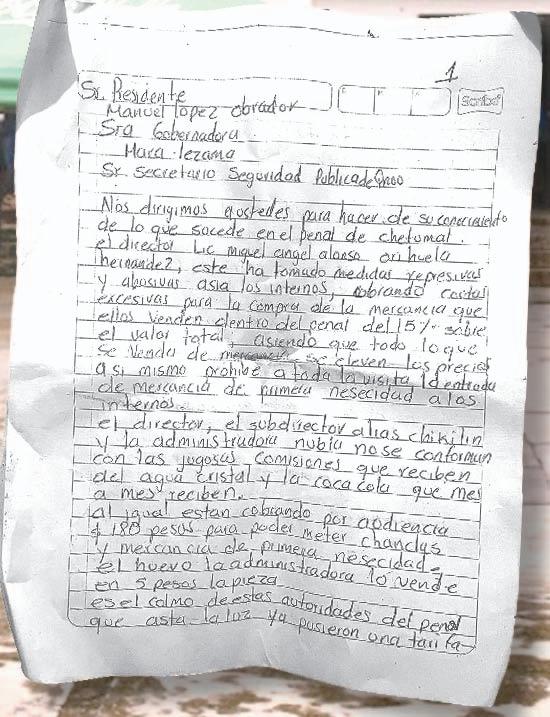 1
Sr. Presidente
Manuel lopez obrador
Scribe
Sra Gobernadora
Mara lezama
Sr. Secretario Seguridad Publica de Qroo
Nos dirigimos austedes para hacer de su conocimiento
de lo que sucede en el penal de chetumal.
el director Lic miguel angel alonso orihuela
hernandez, este ha tomado medidas represivas
y abusivas asia los internos, cobrando cuotas
excesivas para la compra de la mercancia que
ellos venden dentro del penal del 15% sobre
el valor total, asiendo que todo lo que
se venda de mercancia se eleven los precios
asi mismo prohibe a toda la visita la entrada
de mercancia de primera nesecidad a los
internos.
el director, el subdirector alias chikilin
y la administradora nubia no se conforman
con las jugosas comisiones que reciben
del agua cristal y la coca cola que mes
a mes reciben.
al igual estan cobrando por audiencia
$ 180 pesos para poder meter chanclas
y mercancia de primera nesecidad.
el huevo la administradora lo vende
en 5 pesos la pieza
es el colmo de estas autoridades del penal
que asta la luz ya pusieron una tarifa